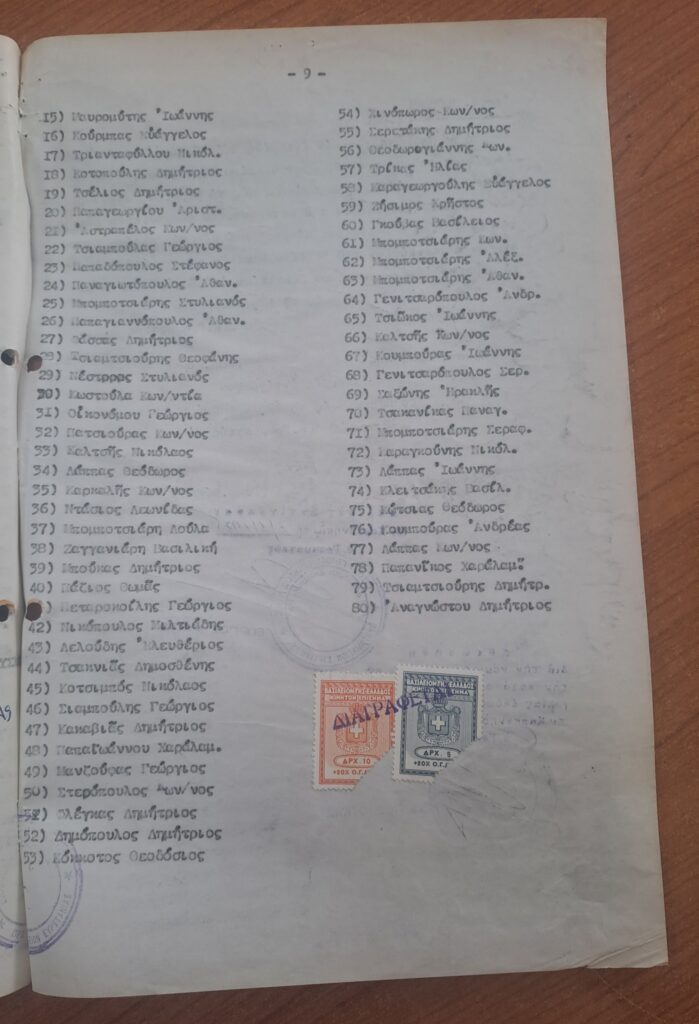 - 9 -
15) Μαυρομύτης Ἰωάννης
16) Κούρμπας Εὐάγγελος
17) Τριανταφύλλου Νικόλ.
18) Κοτοπούλης Δημήτριος
19) Τσέλιος Δημήτριος
20) Παπαγεωργίου Ἀριστ.
21) Ἀστραπέλος Κων/νος
22) Τσιαμπούλας Γεώργιος
23) Παπαδόπουλος Στέφανος
24) Παναγιωτόπουλος Ἀθαν.
25) Μπομποτσιάρης Στυλιανός
26) Παπαγιαννόπουλος Ἀθαν.
27) Δημήτριος
28) Τσιαμτσιούρης Θεοφάνης
29) Στυλιανός
30) Κωστούλα Κων/ντία
31) Οἰκονόμου Γεώργιος
32) Πατσιούρας Κων/νος
33) Καλτσῆς Νικόλαος
34) Λάππας Θεόδωρος
35) Καρκαλῆς Κων/νος
36) Ντάσιος Λεωνίδας
37) Μπομποτσιάρη Λούλα
38) Ζαγγανιάρη Βασιλική
39) Μπούκας Δημήτριος
40) Πάζιος Θωμᾶς
Πεταροκοίλης Γεώργιος
42) Νικόπουλος Μιλτιάδης
43) Λελούδης Ἐλευθέριος
44) Τσακνιᾶς Δημοσθένης
45) Κοτσιμπός Νικόλαος
46) Σιαμπούλης Γεώργιος
47) Κακαβιᾶς Δημήτριος
48) Παπαϊωάννου Χαράλαμ.
49) Μανζούφας Γεώργιος
50) Στερόπουλος Κων/νος
51) Φλέγκας Δημήτριος
52) Δημόπουλος Δημήτριος
53) Κόκκοτος Θεοδόσιος
54) Χινόπωρος Κων/νος
55) Σερετάκης Δημήτριος
56) Θεοδωρογιάννης Κων.
57) Τρίκας Ἠλίας
58) Καραγεωργούλης Εὐάγγελος
59) Ζήσιμος Χρῆστος
60) Γκούβας Βασίλειος
61) Μπομποτσιάρης Κων.
62) Μπομποτσιάρης Ἀλέξ.
63) Μπομποτσιάρης Ἀθαν.
64) Γενιτσαρόπουλος Ἀνδρ.
65) Τσιῶκος Ἰωάννης
66) Καλτσῆς Κων/νος
67) Κουμπούρας Ἰωάννης
68) Γενιτσαρόπουλος Σερ.
69) Σαζώνης Ἡρακλῆς
70) Τσακανίκας Παναγ.
71) Μπομποτσιάρης Σεραφ.
72) Καραγκούνης Νικόλ.
73) Λάππας Ἰωάννης
74) Κλειτσάκης Βασίλ.
75) Κότσιας Θεόδωρος
76) Κουμπούρας Ἀνδρέας
77) Λάππας Κων/νος
78) Παπανῖκος Χαράλαμ.
79) Τσιαμτσιούρης Δημήτρ.
80) Ἀναγνώστου Δημήτριος
ΒΑΣΙΛΕΙΟΝ ΤΗΣ ΕΛΛΑΔΟΣ
ΚΙΝΗΤΟΝ ΕΠΙΣΗΜΑ
ΔΡΧ. 10
+20% Ο.Γ.
ΒΑΣΙΛΕΙΟΝ ΤΗΣ ΕΛΛΑΔΟΣ
ΚΙΝΗΤΟΝ ΕΠΙΣΗΜΑ
ΔΡΧ. 5
+20% Ο.Γ.